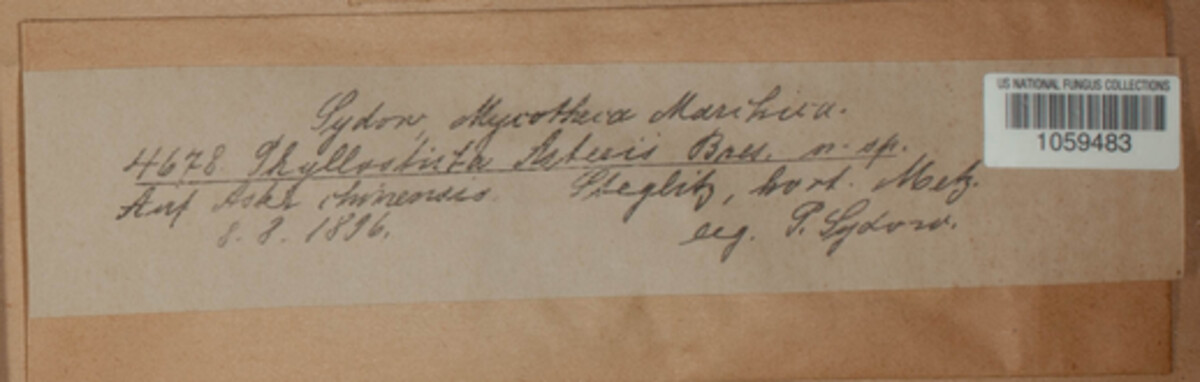 US NATIONAL FUNGUS COLLECTIONS
1059483
Sydow, Mycotheca Marchica.
4678. Phyllosticta Asteris Bres. n. sp.
Auf Aster chinensis. Steglitz, hort. Metz.
8. 8. 1896. leg. P. Sydow.